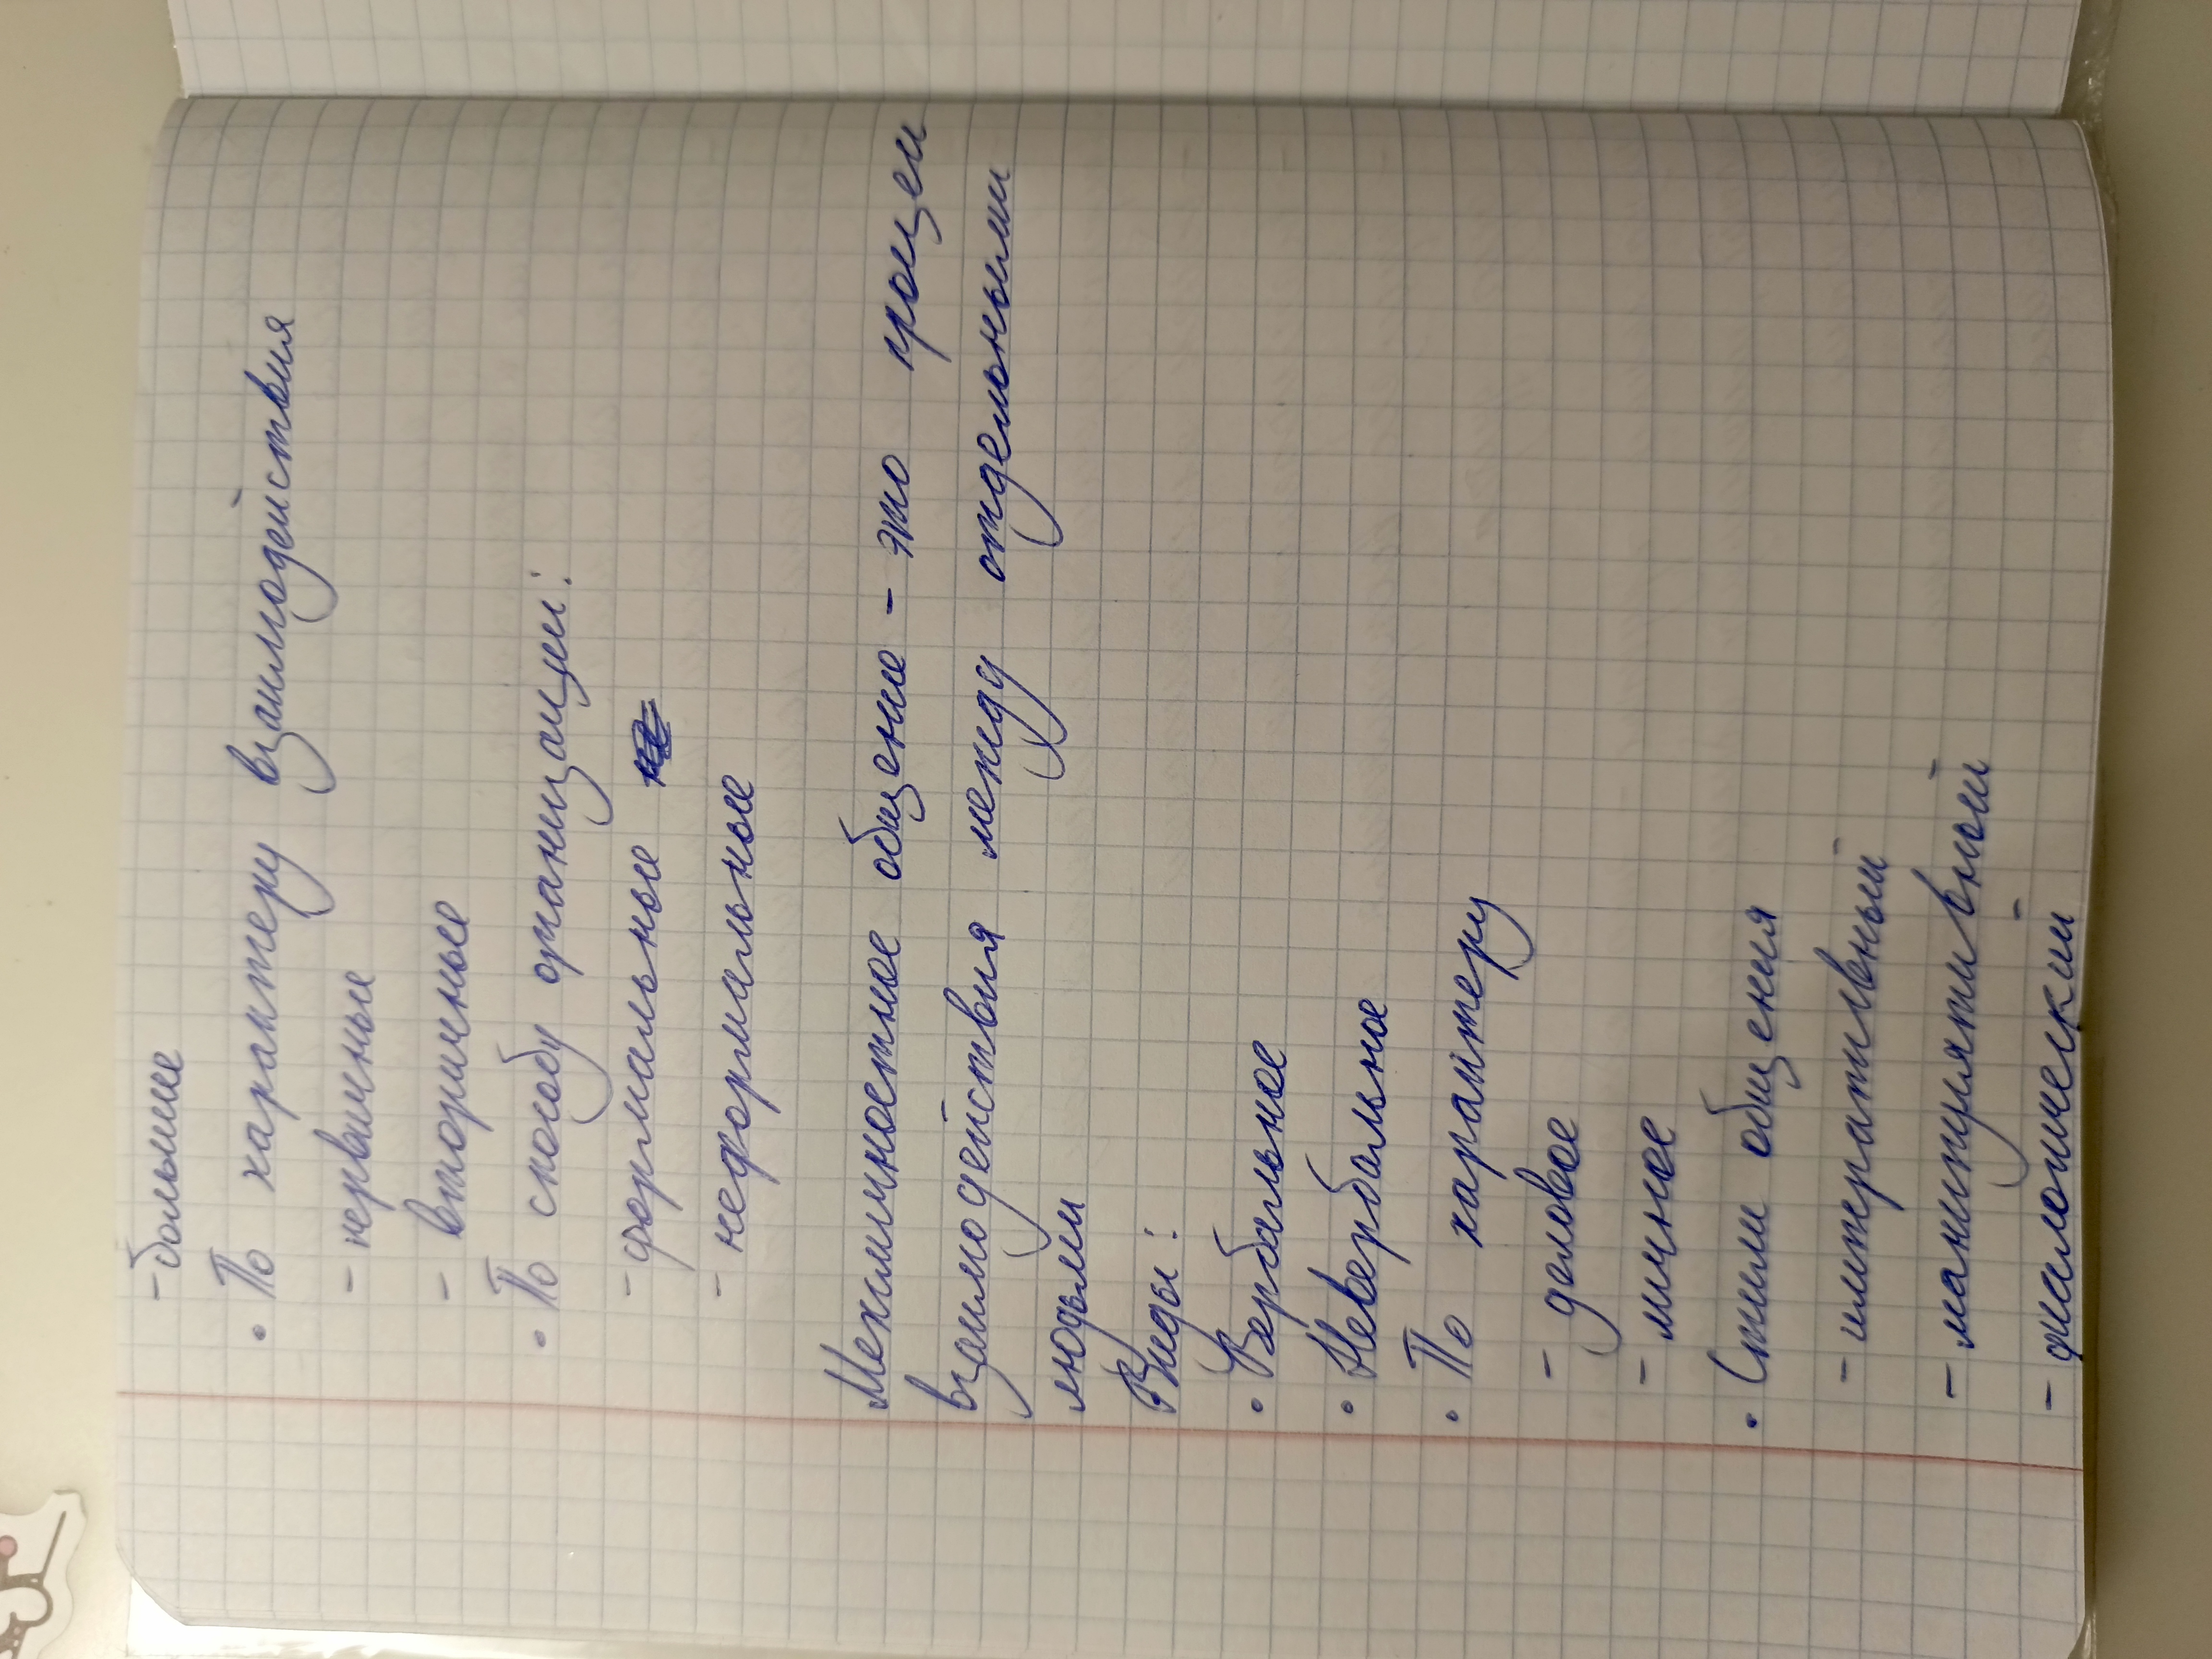 - большие
• По характеру взаимодействия
- первичные
- вторичные
• По способу организации:
- формальные
- неформальные
Межличностное общение - это процесс
взаимодействия между отдельными
людьми
Виды:
• Вербальное
• Невербальное
• По характеру
- деловое
- личное
• Стили общения
- императивный
- манипулятивный
- диалогический